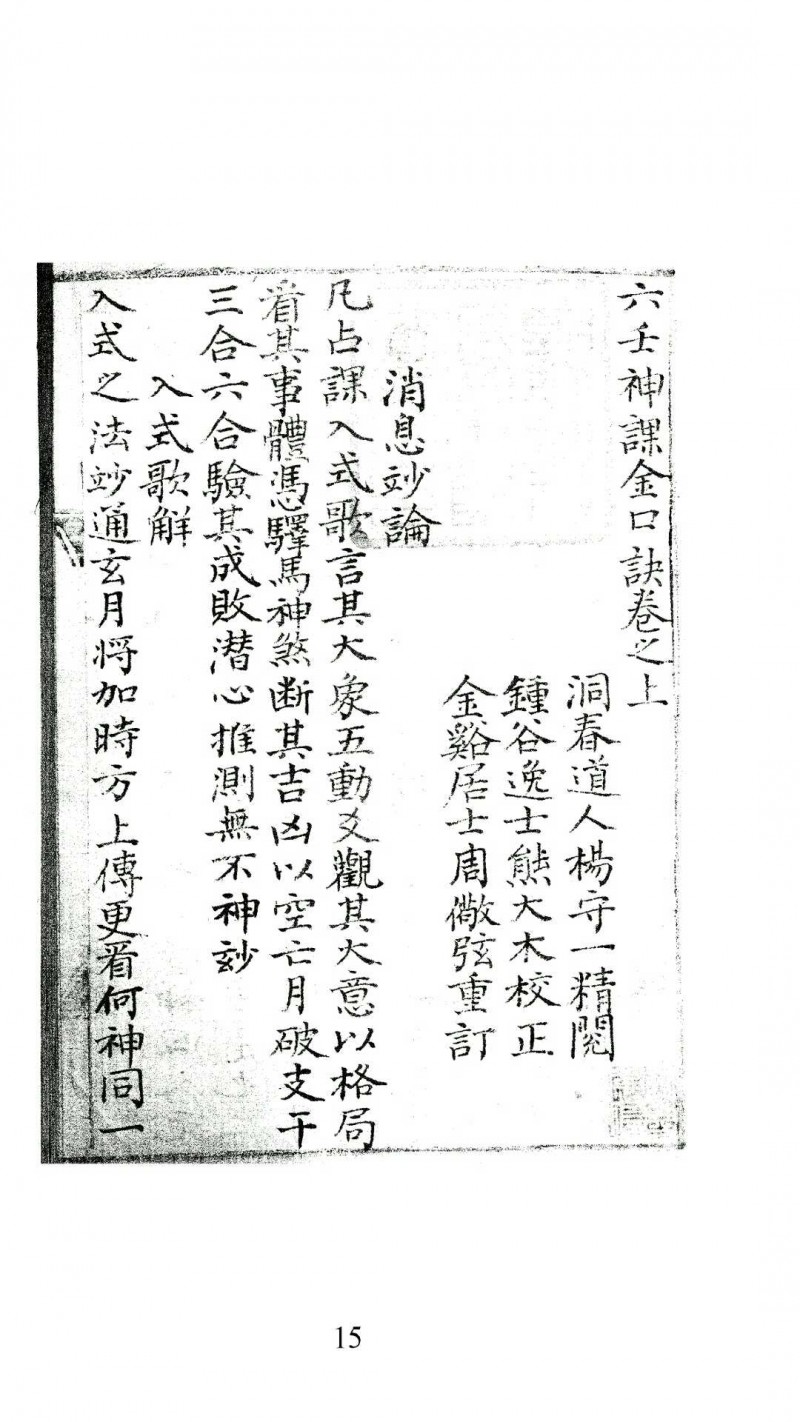 六壬神課金口訣卷之上
洞春道人楊守一精閱
鍾谷逸士熊大木校正
金谿居士周儆弦重訂
消息玅論
凡占課入式歌言其大象五動爻觀其大意以格局
看其事體馮驛馬神煞断其吉凶以空亡月破支干
三合六合驗其成敗潛心推測無不神玅
入式歌解
入式之法玅通玄月将加時方上傳更看何神同一
15